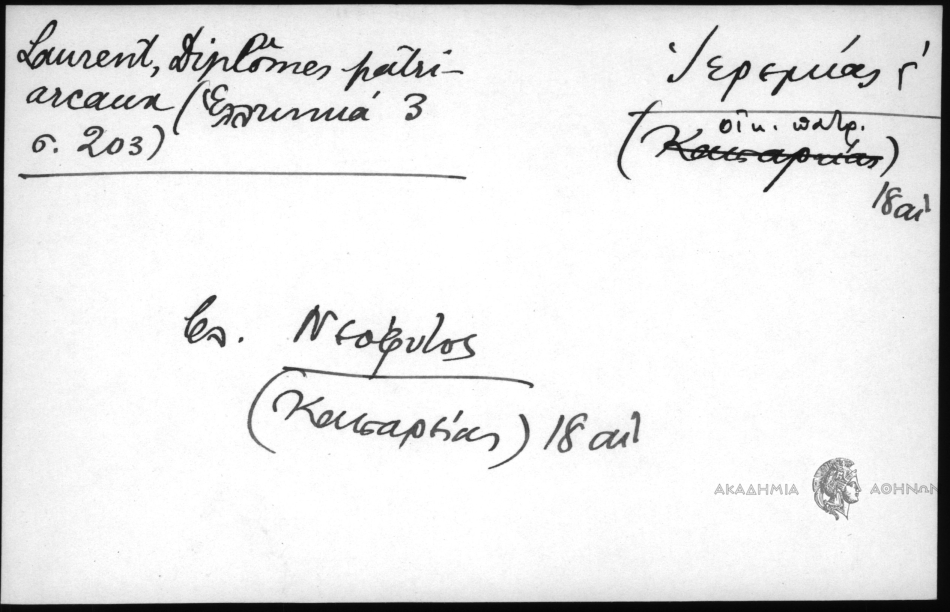 Laurent, Diplômes patri-
arcaux (Ἑλληνικά 3
σ. 203)
Ἱερεμίας Γ´
οἰκ. πατρ.
(Καισαρείας)
18 αἰ
Βλ. Νεόφυτος
(Καισαρείας) 18 αἰ
ΑΚΑΔΗΜΙΑ ΑΘΗΝΩΝ